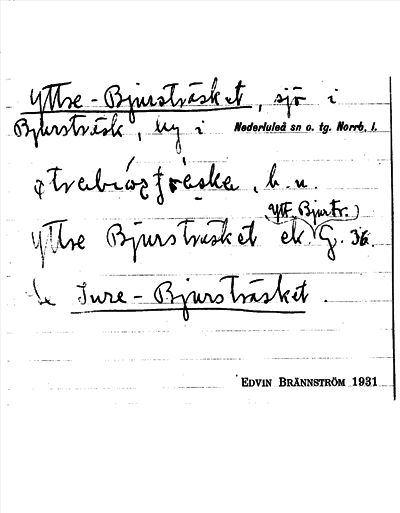 Yttre-Bjursträsket, sjö i
Bjursträsk, by i Nederluleå sn o. tg. Norrb. l.
b. u.
(Ytt. Bjurtr.)
Yttre Bjursträsket ek. G. 36.
Se Inre-Bjursträsket.
EDVIN BRÄNNSTRÖM 1931